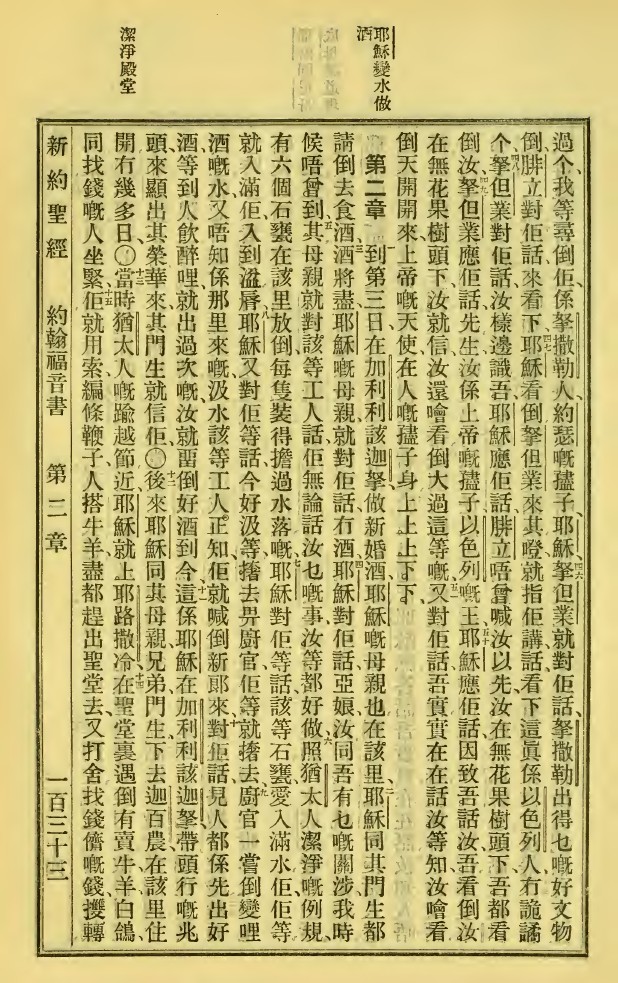 耶穌變水做
酒
潔淨殿堂
過个、我等尋倒佢係拏撒勒人約瑟嘅孻子耶穌、四六拏但業就對佢話、拏撒勒出得乜嘅好文物
倒、腓立對佢話、來看下、四七耶穌看倒拏但業來其嶝、就指佢講話、看下這眞係以色列人、冇詭譎
个、四八拏但業對佢話、汝樣邊識吾、耶穌應佢話、腓立唔曾喊汝以先、汝在無花果樹頭下、吾都看
倒汝、四九拏但業應佢話、先生、汝係上帝嘅孻子、以色列嘅王、五十耶穌應佢話、因致吾話汝、吾看倒汝
在無花果樹頭下、汝就信、汝還噲看倒大過這等嘅、五一又對佢話、吾實實在在話汝等知、汝噲看
倒天開開來、上帝嘅天使在人嘅孻子身上、上上下下、
第二章 一到第三日、在加利利該迦拏做新婚酒、耶穌嘅母親也在該里、二耶穌同其門生都
請倒去食酒、三酒將盡、耶穌嘅母親就對佢話、冇酒、四耶穌對佢話、亞娘、汝同吾有乜嘅關涉、我時
候唔曾到、五其母親就對該等工人話、佢無論話汝乜嘅事、汝等都好做、六照猶太人潔淨嘅例規、
有六個石甕在該里放倒、每隻裝得擔過水落嘅、七耶穌對佢等話、該等石甕愛入滿水佢、佢等
就入滿佢、入到溢脣、八耶穌又對佢等話、今好汲等搼去畀廚官、佢等就搼去、九廚官一嘗倒變哩
酒嘅水、又唔知係那里來嘅、汲水該等工人正知、佢就喊倒新郎來、十對佢話、見人都係先出好
酒、等到人飲醉哩、就出過次嘅、汝就畱倒好酒到今、十一這係耶穌在加利利該迦拏帶頭行嘅兆
頭、來顯出其榮華來、其門生就信佢、〇十二後來耶穌同其母親兄弟門生下去迦百農、在該里住
開冇幾多日、〇十三當時猶太人嘅踰越節近、耶穌就上耶路撒冷、十四在聖堂裏遇倒有賣牛羊白鴿、
同找錢嘅人坐緊、十五佢就用索編條鞭子、人搭牛羊盡都趕出聖堂去、又打舍找錢儕嘅錢、攪轉
新約聖經 約翰福音書 第二章 一百三十三